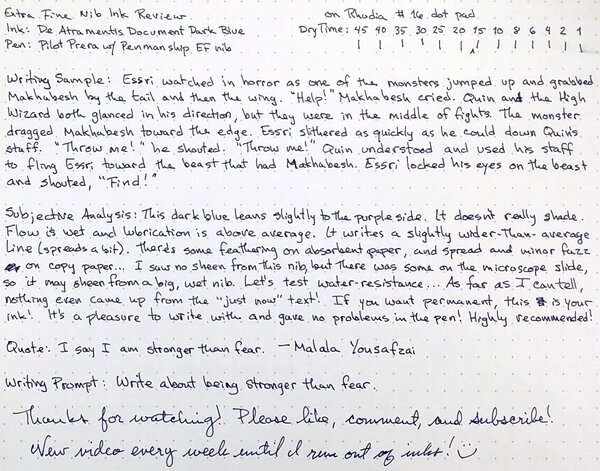 Extra Fine Nib Ink Review
on Rhodia #16 dot pad.
Ink: De Atramentis Document Dark Blue
Dry Time: 45 40 35 30 25 20 15 10 8 6 4 2 1
Pen: Pilot Prera w/ Penmanship EF nib
Writing Sample: Essri watched in horror as one of the monsters jumped up and grabbed
Makhabesh by the tail and then the wing. "Help!" Makhabesh cried. Quin and the High
Wizard both glanced in his direction, but they were in the middle of fights. The monster
dragged Makhabesh toward the edge. Essri slithered as quickly as he could down Quin's
staff. "Throw me!" he shouted. "Throw me!" Quin understood and used his staff
to fling Essri toward the beast that had Makhabesh. Essri locked his eyes on the beast
and shouted, "Find!"
Subjective Analysis: This dark blue leans slightly to the purple side. It doesn't really shade.
Flow is wet and lubrication is above average. It writes a slightly wider-than-average
line (spreads a bit). There's some feathering on absorbent paper, and spread and minor fuzz
on copy paper... I saw no sheen from this nib, but there was some on the microscope slide,
so it may sheen from a big, wet nib. Let's test water-resistance... As far as I can tell,
nothing even came up from the "just now" text! If you want permanent, this is your
ink! It's a pleasure to write with and gave no problems in the pen! Highly recommended!
Quote: I say I am stronger than fear. —Malala Yousafzai
Writing Prompt: Write about being stronger than fear.
Thanks for watching! Please like, comment, and subscribe!
New video every week until I run out of inks!